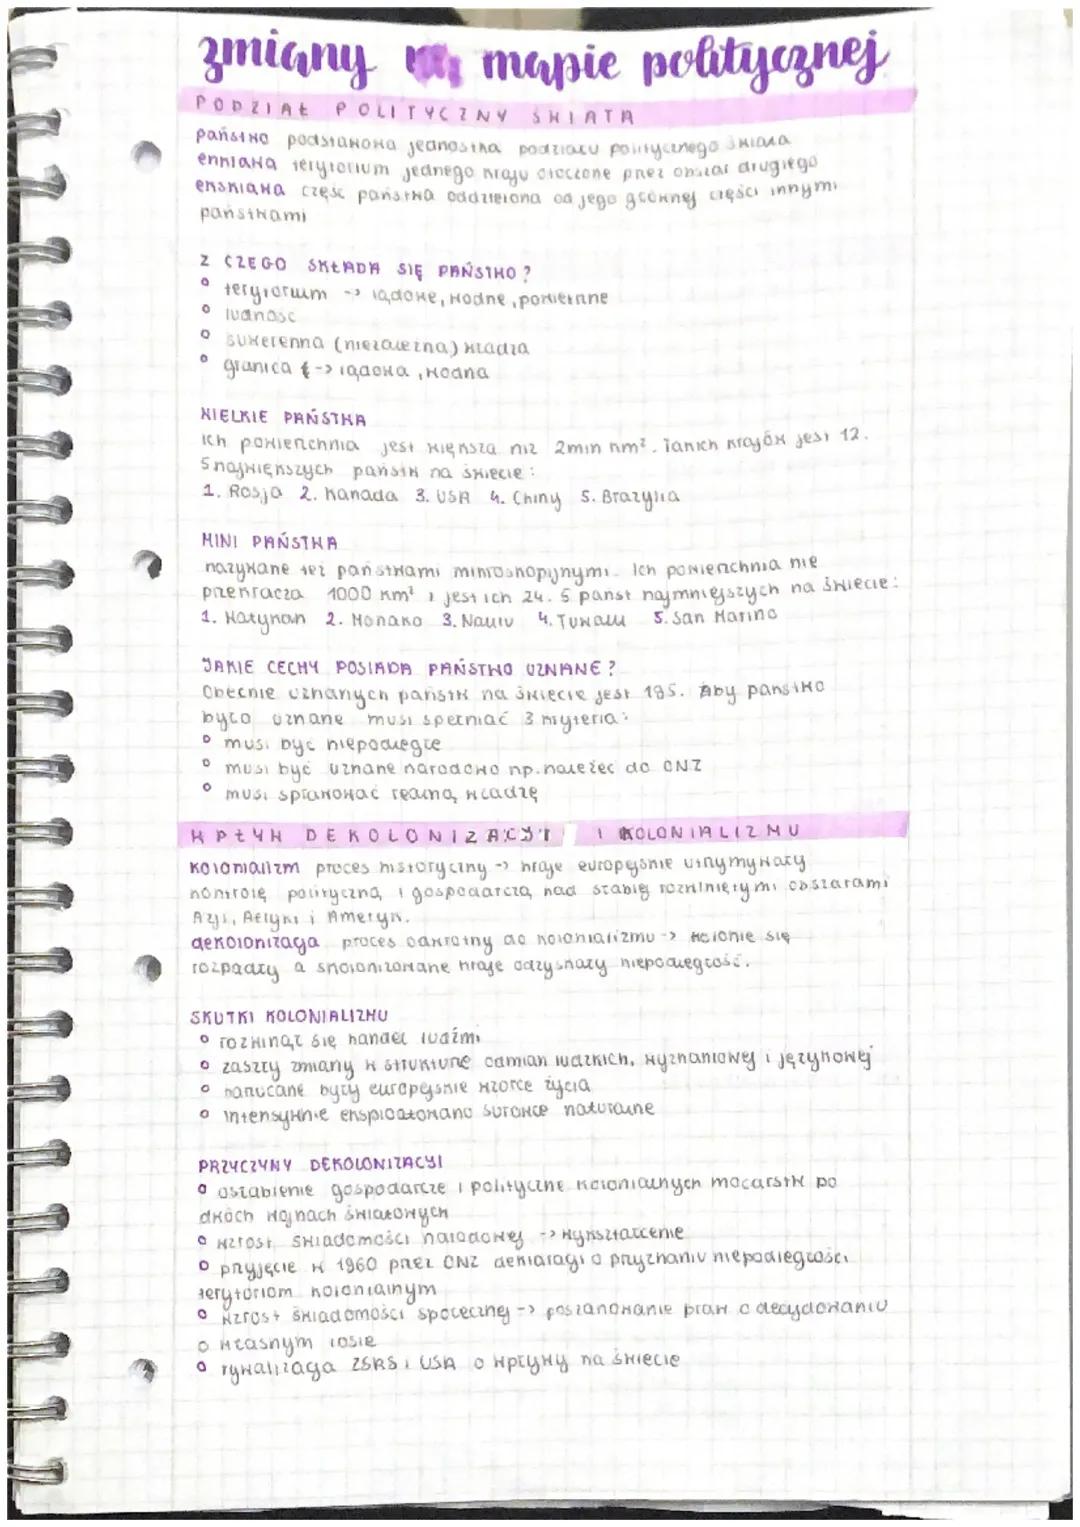 zmiany na mapie politycznej
PODZIAŁ POLITYCZNY ŚWIATA
państwo podstawowa jednostka podziału politycznego świata
enklawa terytorium jednego kraju otoczone przez obszar drugiego
eksklawa część państwa oddzielona od jego głównej części innymi
państwami
Z CZEGO SKŁADA SIĘ PAŃSTWO?
° terytorium -> lądowe, wodne, powietrzne
° ludność
° suwerenna (niezależna) władza
° granica -> lądowa, wodna
WIELKIE PAŃSTWA
ich powierzchnia jest większa niż 2mln km². Takich krajów jest 12.
5 największych państw na świecie:
1. Rosja 2. Kanada 3. USA 4. Chiny 5. Brazylia
MINI PAŃSTWA
nazywane też państwami mikroskopijnymi. Ich powierzchnia nie
przekracza 1000 km² i jest ich 24. 5 państ najmniejszych na świecie:
1. Watykan 2. Monako 3. Nauru 4. Tuwalu 5. San Marino
JAKIE CECHY POSIADA PAŃSTWO UZNANE?
Obecnie uznanych państw na świecie jest 195. Aby państwo
było uznane musi spełniać 3 kryteria:
° musi być niepodległe
° musi być uznane narodowo np. należeć do ONZ
° musi sprawować realną władzę
WPŁYW DEKOLONIZACJI I KOLONIALIZMU
kolonializm proces historyczny -> kraje europejskie utrzymywały
kontrolę polityczną i gospodarczą nad słabiej rozwiniętymi obszarami
Azji, Afryki i Ameryk.
dekolonizacja proces odwrotny do kolonializmu -> kolonie się
rozpadły a skolonizowane kraje odzyskały niepodległość.
SKUTKI KOLONIALIZMU
° rozwinął się handel ludźmi
° zaszły zmiany w strukturze odmian ludzkich, wyznaniowej i językowej
° narzucane były europejskie wzorce życia
° intensywnie eksploatowano surowce naturalne
PRZYCZYNY DEKOLONIZACJI
° osłabienie gospodarcze i polityczne kolonialnych mocarstw po
dwóch wojnach światowych
° wzrost świadomości narodowej -> wykształcenie
° przyjęcie w 1960 przez ONZ deklaracji o przyznaniu niepodległości
terytoriom kolonialnym
° wzrost świadomości społecznej -> poszanowanie praw o decydowaniu
° własnym losie
° rywalizacja ZSRS i USA o wpływy na świecie